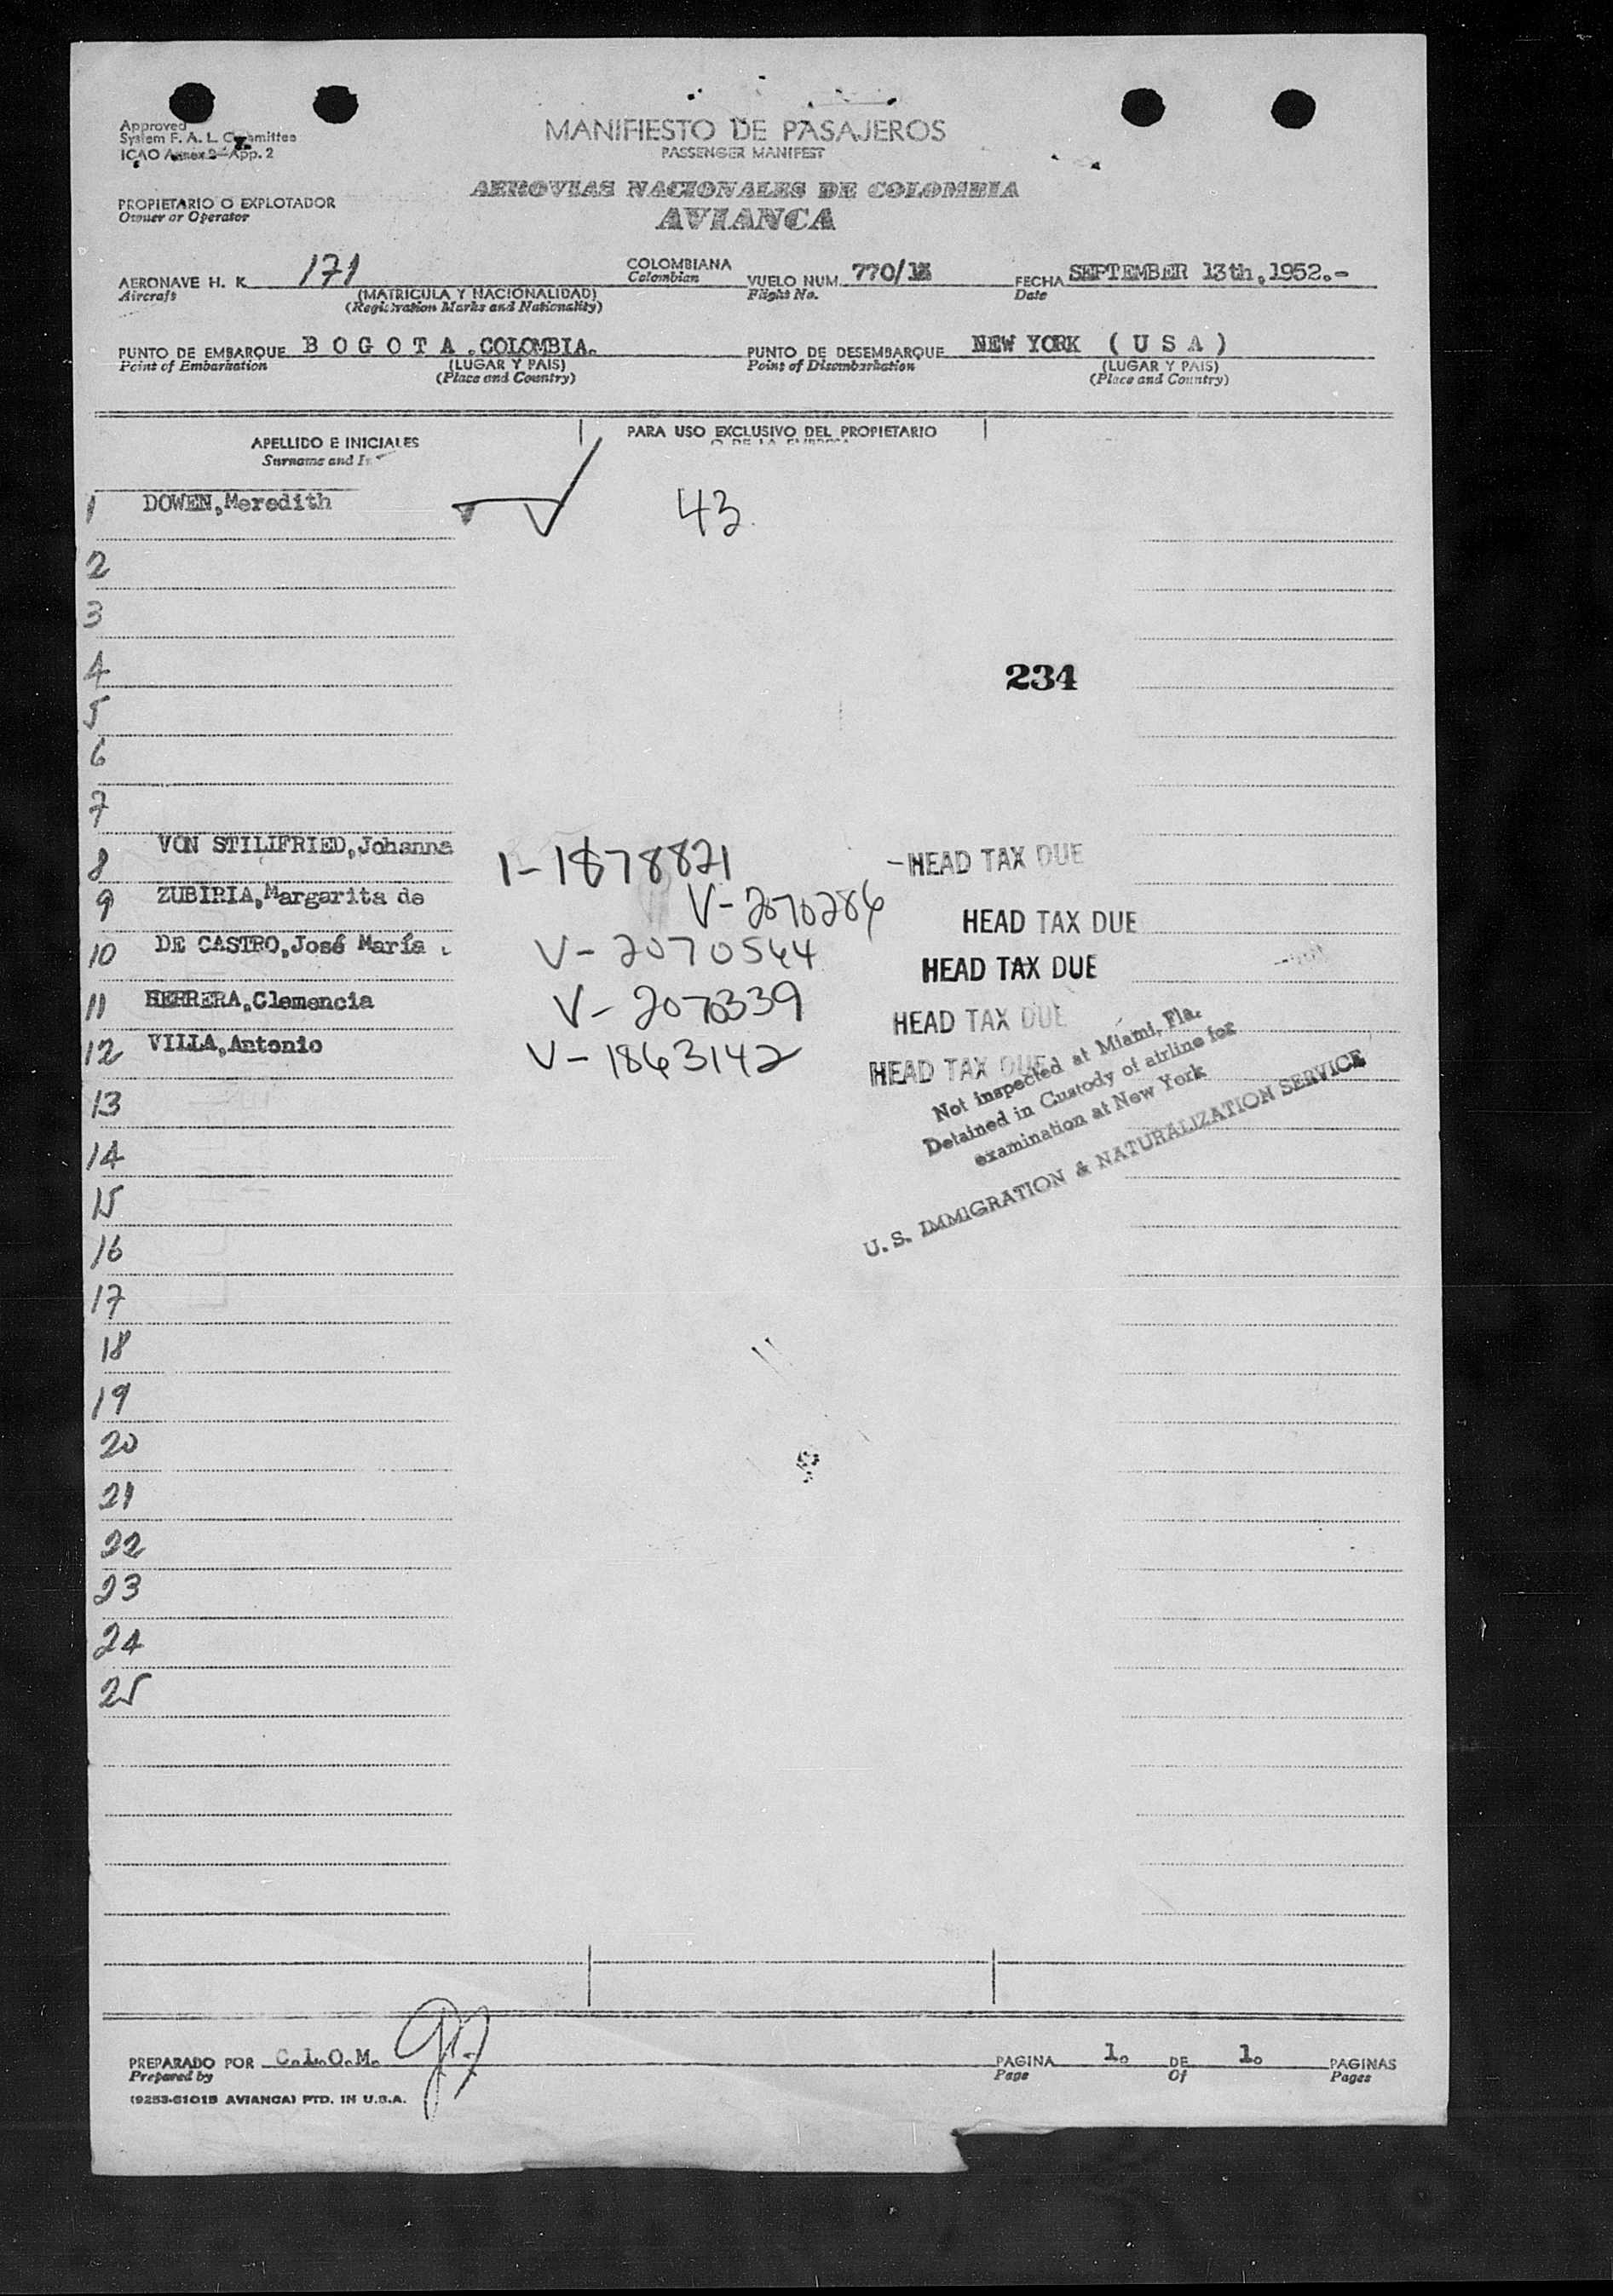 Approved
System F. A. L. Committee
ICAO Annex 9—App. 2
MANIFIESTO DE PASAJEROS
PASSENGER MANIFEST
AEROVIAS NACIONALES DE COLOMBIA
AVIANCA
PROPIETARIO O EXPLOTADOR
Owner or Operator
AERONAVE H. K. 171 COLOMBIANA VUELO NUM. 770/ FECHA SEPTEMBER 13th,1952.-
Aircraft (MATRICULA Y NACIONALIDAD) Colombian Flight No. Date
(Registration Marks and Nationality)
PUNTO DE EMBARQUE B O G O T A .COLOMBIA. PUNTO DE DESEMBARQUE NEW YORK ( U S A )
Point of Embarkation (LUGAR Y PAIS) Point of Disembarkation (LUGAR Y PAIS)
(Place and Country) (Place and Country)
APELLIDO E INICIALES PARA USO EXCLUSIVO DEL PROPIETARIO
Surname and O DE LA EMPRESA
1 DOWEN,Meredith 43
2
3
4 234
5
6
7
8 VON STILIFRIED,Johanna I-1878821 -HEAD TAX DUE
9 ZUBIRIA,Margarita de V-2070286 HEAD TAX DUE
10 DE CASTRO,José María . V-2070544 HEAD TAX DUE
11 HERRERA,Clemencia V-2070339 HEAD TAX DUE
12 VILLA,Antonio V-1863142 HEAD TAX DUE
Not inspected at Miami, Fla.
Detained in Custody of airline for
examination at New York
U. S. IMMIGRATION & NATURALIZATION SERVICE
13
14
15
16
17
18
19
20
21
22
23
24
25
PREPARADO POR C.L.O.M. PAGINA 1. DE 1. PAGINAS
Prepared by Page Of Pages
(9253-6101B AVIANCA) PTD. IN U.S.A.